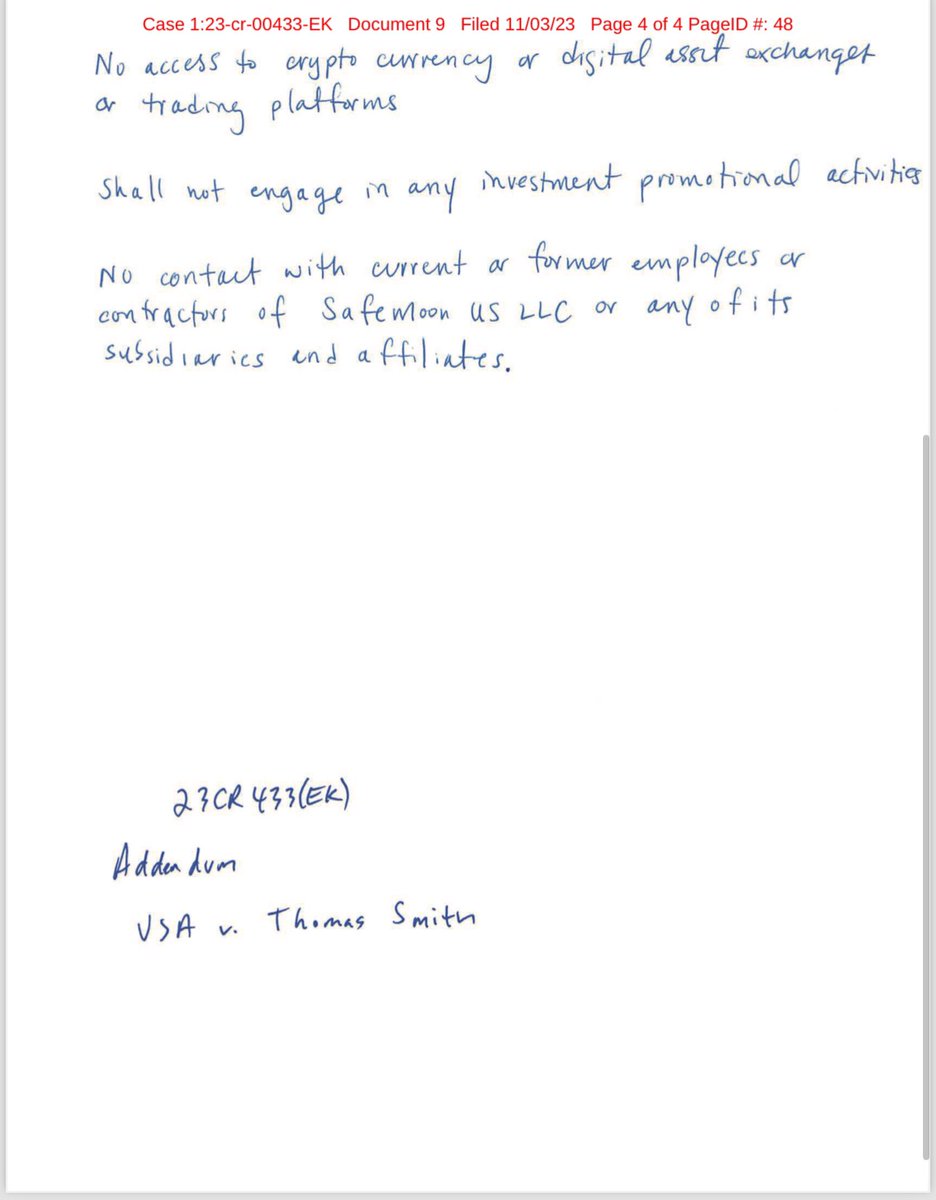 Case 1:23-cr-00433-EK Document 9 Filed 11/03/23 Page 4 of 4 PageID #: 48
No access to crypto currency or digital asset exchanges
or trading platforms
Shall not engage in any investment promotional activities
No contact with current or former employees or
contractors of Safemoon US LLC or any of its
subsidiaries and affiliates.
23CR433(EK)
Addendum
USA v. Thomas Smith